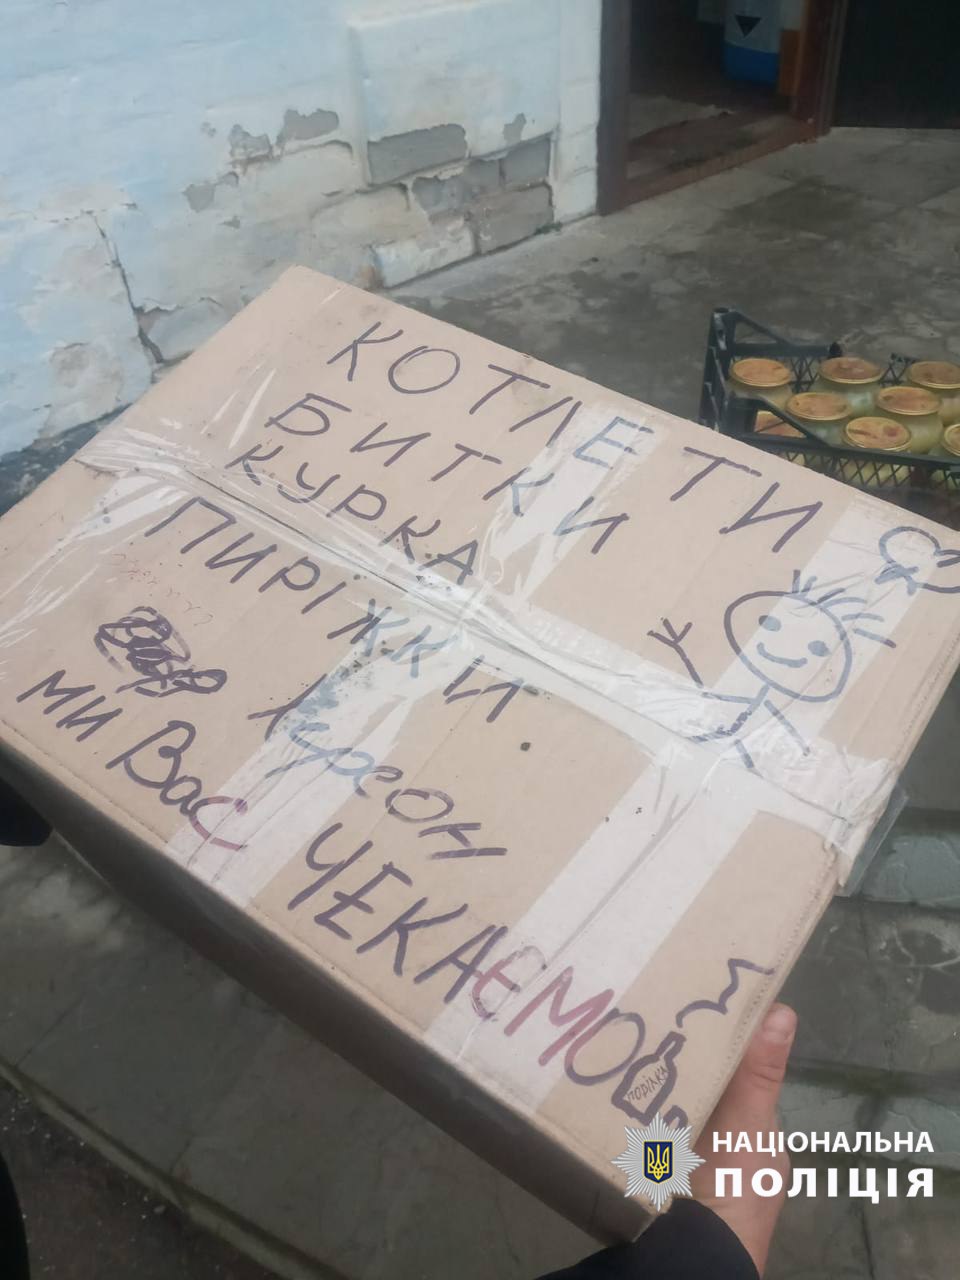 КОТЛЕТИ
БИТКИ
КУРКА
ПИРІЖКИ
Херсон
МИ ВАС
ЧЕКАЄМО
ГОРІЛКА
НАЦІОНАЛЬНА
ПОЛІЦІЯ